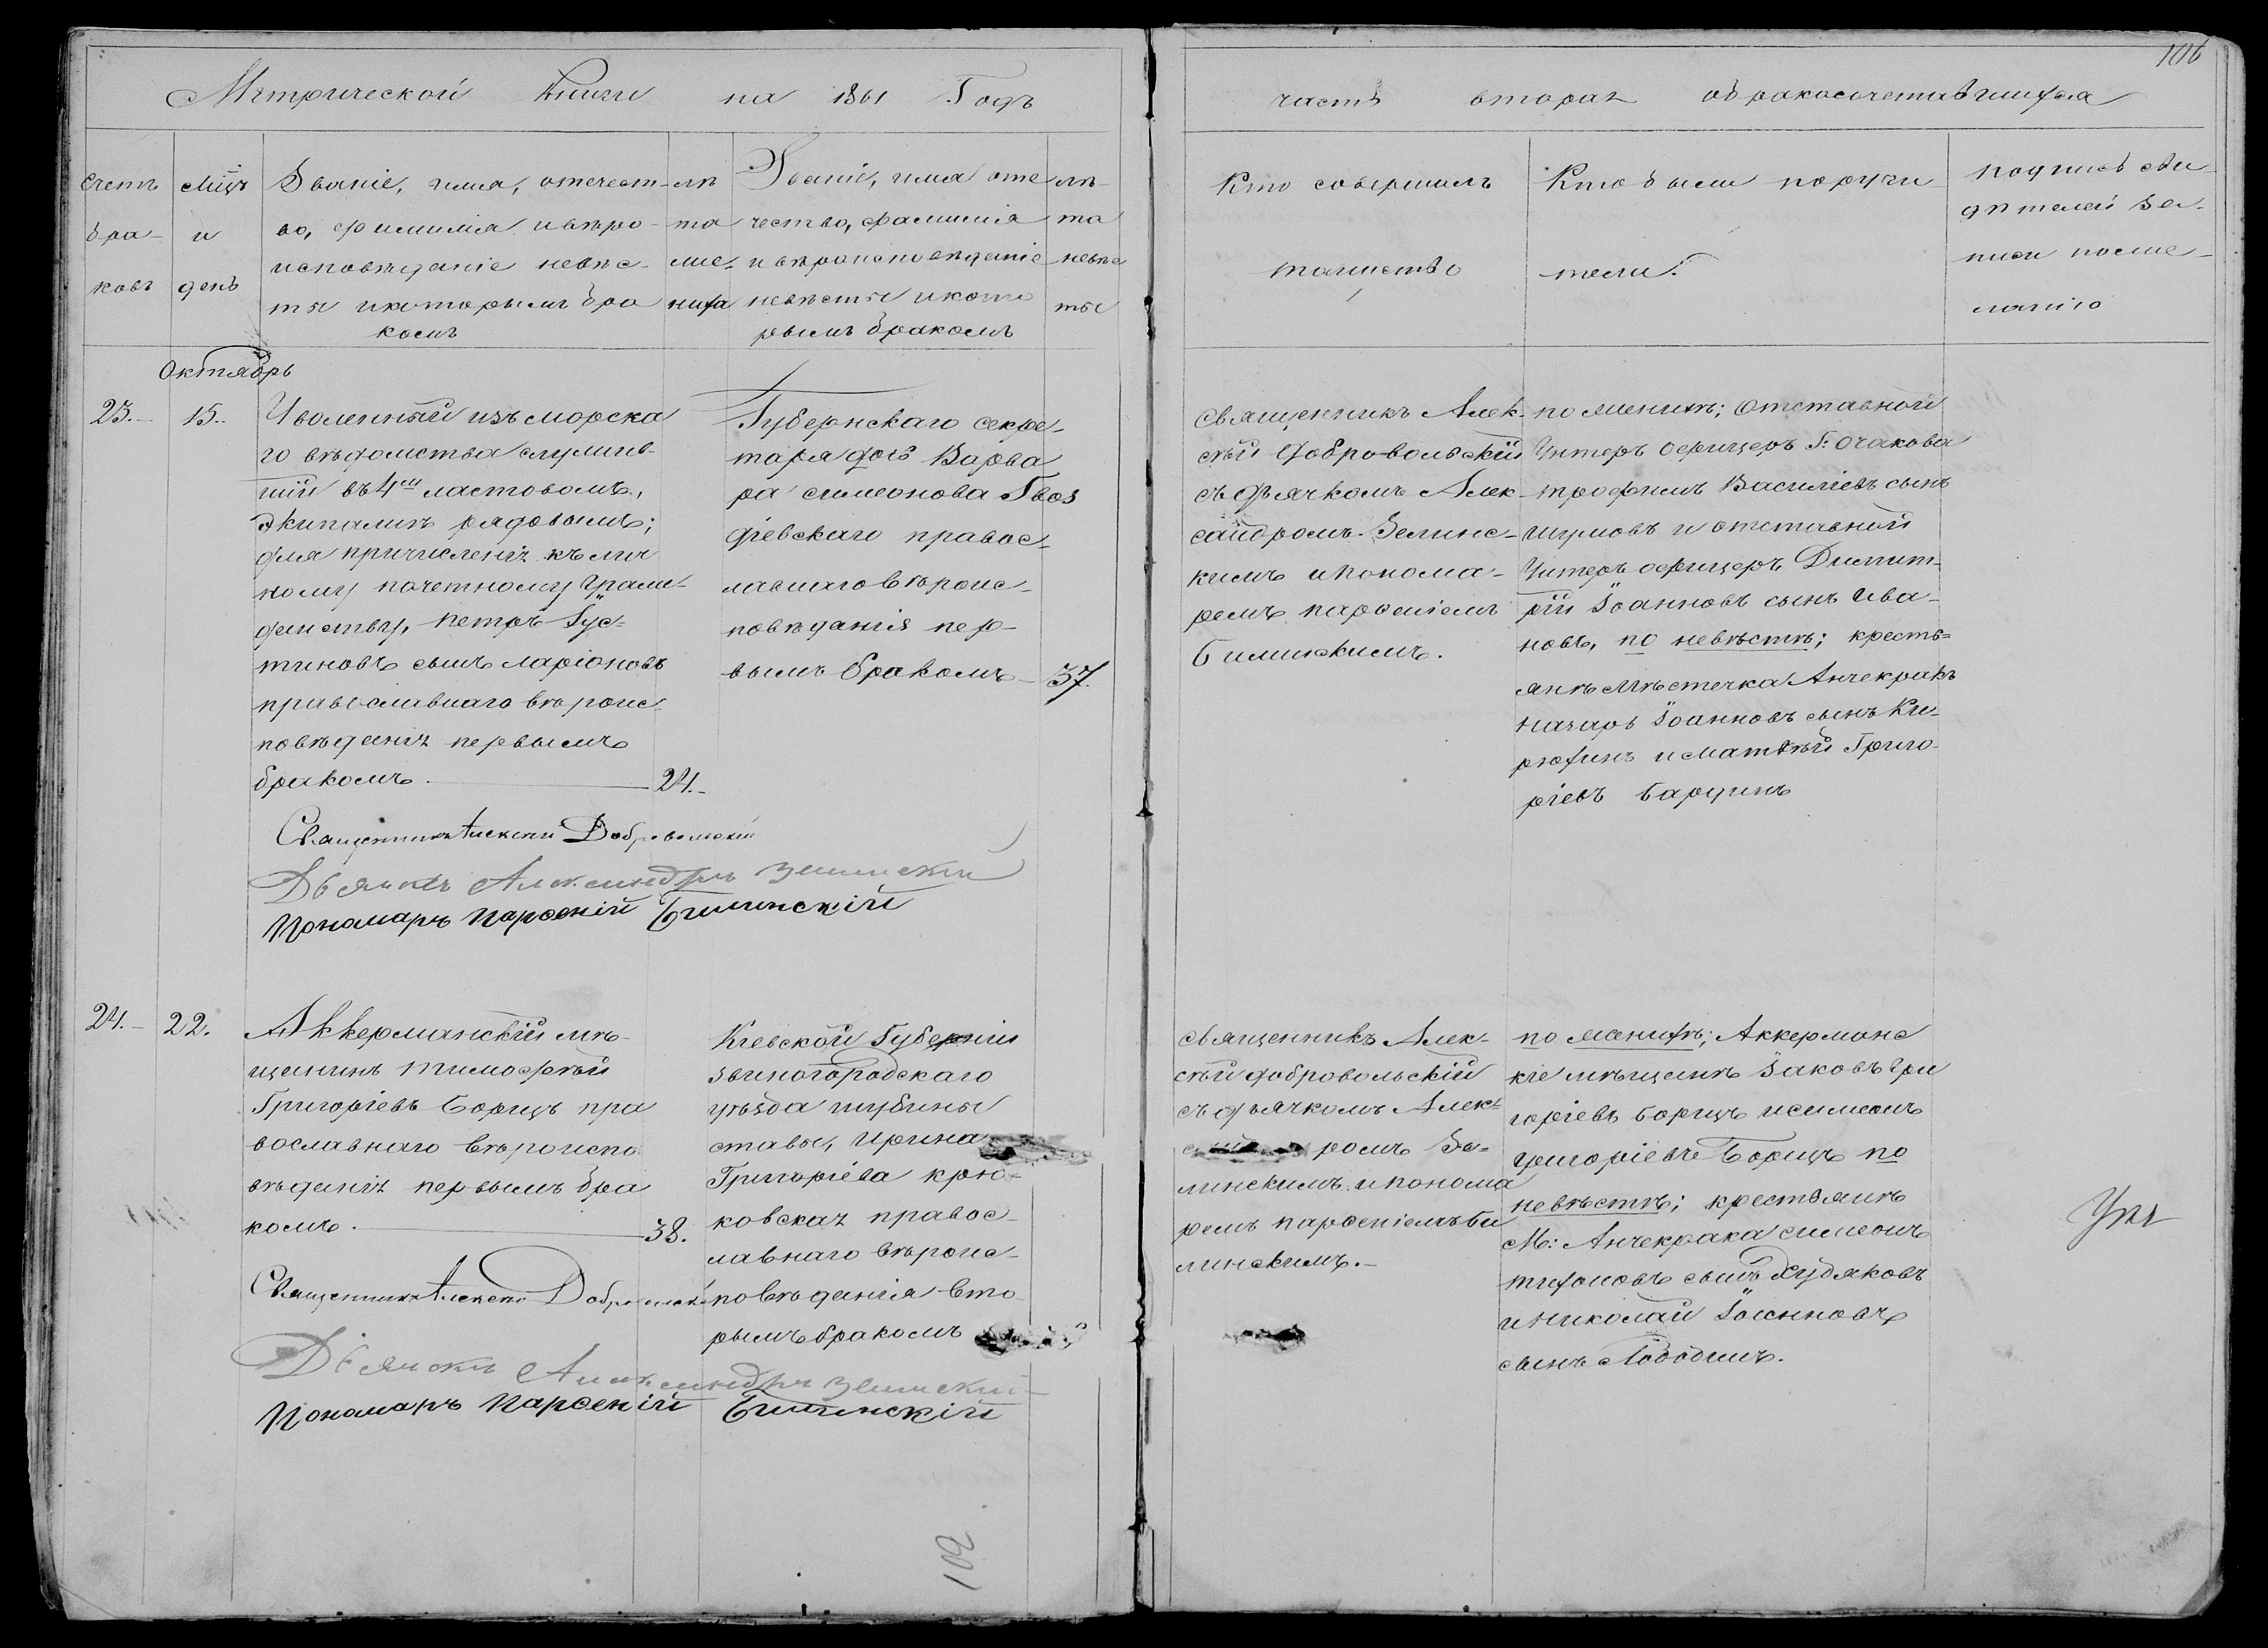 106
Метрической Книги на 1861 Годъ
часть вторая о бракосочетавшихся
Счетъ бра- ковъ
Мцъ и день
Званіе, имя, отечест-
во, фамилія и вѣро-
исповѣданіе невѣс-
ты и которымъ бра
комъ
лѣ
та
жениха
Званіе, имя оте
чество, фамилія
и вѣроисповѣданіе
невѣсты и кото
рымъ бракомъ
лѣ-
та
невѣс
ты
Кто совершилъ
таинство
Кто были поручи-
тели.
подпись сви-
дѣтелей за-
писи по же-
ланію
Октябрь
23.
15.
Уволенный изъ морска
го вѣдомства служив-
шій въ 4мъ ластовомъ,
Экипажѣ рядовымъ;
для причисленія къ лич
ному почетному граж-
данству, Петръ Іус-
тиновъ сынъ Ларіоновъ
православнаго вѣроис-
повѣданія первымъ
бракомъ. 24.
Губернскаго секре-
таря дочь Варва
ра Симеонова Гвоз
діевскаго правос-
лавнаго вѣроис-
повѣданія пер-
вымъ бракомъ 37.
Священникъ Алек-
сѣй Добровольскій
съ дьячкомъ Алек-
сандромъ Зелинс-
кимъ и понома-
ремъ Парѳеніемъ
Билинскимъ.
по женихѣ; Отставной
Унтеръ офицеръ Г: Очакова
Трофимъ Василіевъ сынъ
Шумовъ и отставной
Унтеръ офицеръ Димит-
рій Іоанновъ сынъ Ива-
новъ, по невѣстѣ; кресть=
янѣ Мѣстечка Анчекракъ
Назаръ Іоанновъ сынъ Ки-
рюхинъ и Матѳѣй Григо-
ріевъ Бардинъ
Священникъ Алексій Добровольскій
Дьячекъ Александръ Зелинскій
Пономаръ Парѳеній Билинскій
24.
22.
Аккерманскій мѣ-
щанинъ Тимофѣй
Григоріевъ Борицъ пра
вославнаго вѣроиспо
вѣданія первымъ бра
комъ. 38.
Кіевской Губерніи
Звиногородскаго
уѣзда Шубины
ставы, Ирина
Григоріева Крю-
ковская правос-
лавнаго вѣроис-
повѣданія вто
рымъ бракомъ
Священникъ Алек-
сѣй Добровольскій
съ дьячкомъ Алек-
ромъ Зе-
линскимъ и понома
ремъ Парѳеніемъ Би
линскимъ.
по женихѣ; Аккерманс
кіе мѣщанѣ Іаковъ Гри
горіевъ Борицъ и Симеонъ
Григоріевъ Борицъ по
невѣстѣ; крестьянѣ
М: Анчекрака Симеонъ
Тихоновъ сынъ Худяковъ
и Николай Іоанновъ
сынъ Лободинъ.
Священникъ Алексій Добровольскій
Дьячекъ Александръ Зелинскій
Пономаръ Парѳеній Билинскій
102